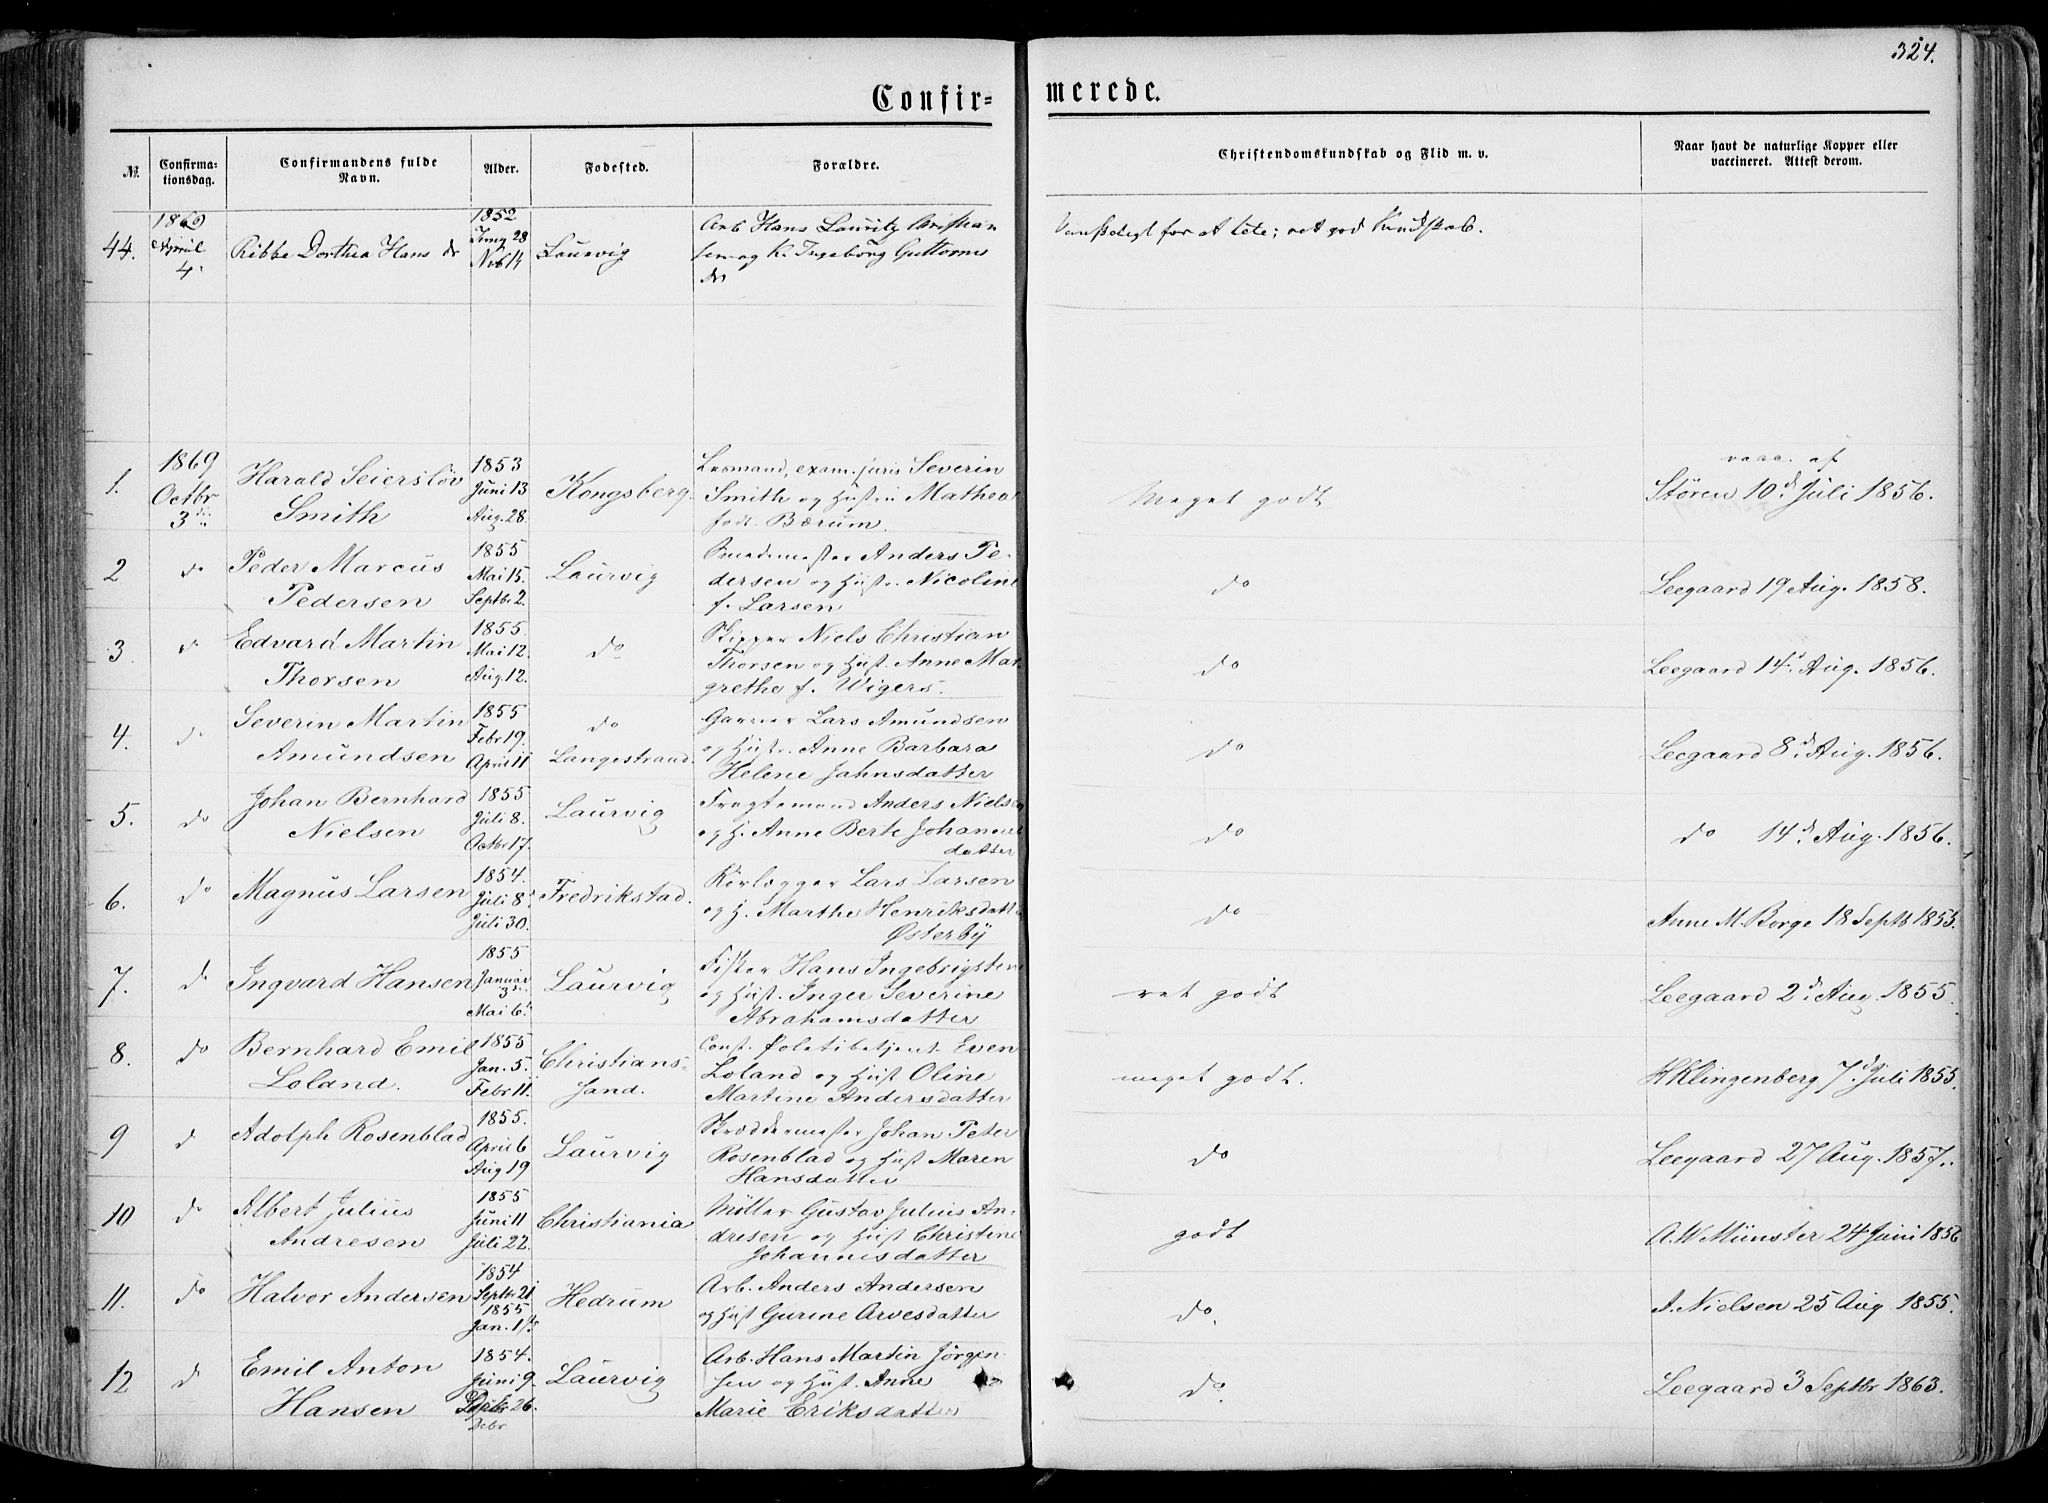 324.
Confir=
merede.
№
Confirma-
tionsdag.
Confirmandens fulde
Navn.
Alder.
Fodested.
Forældre.
Christendomskundskab og Flid m. v.
Naar havt de naturlige Kopper eller
vaccineret. Attest derom.
44.
1869
April
4
Ribbe Dorthea Hans dr
1852
28
Laurvig
Arb Hans Lauritz Christian
sen og K. Ingeborg Guttorms
dr
for at læse; ret god Kundskab.
1.
1869
Octbr
3
Harald Seiersløv
Smith
1853
Juni 13
Aug. 28
Kongsberg
exam. juris Severin
Smith og Hustru Mathea
fød. Bærum
Meget godt
vacc. af
Støren 10d Juli 1856.
2
do
Peder Marcus
Pedersen
1855
Mai 15.
Septbr 2.
Laurvig
Anders Pe-
dersen og Hustr. Nicoline
f. Larsen
do
Leegaard 19 Aug. 1858.
3
do
Edvard Martin
Thorsen
1855
Mai 12.
Aug. 12.
do
Skipper Niels Christian
Thorsen og Hust. Anne Mar
grethe f. Wigers.
do
Leegaard 14d Aug. 1856.
4.
do
Severin Martin
Amundsen
1855
Febr 19.
April 11
do
Langestrand.
Garver Lars Amundsen
og Hustr. Anne Barbara
Helene Jahnsdatter
do
Leegaard 8d Aug. 1856.
5.
do
Johan Bernhard
Nielsen
1855
Juli 8.
Octbr 17.
Laurvig
Fragtemand Anders Nielsen
og H. Anne Berte Johannes
datter
do
do 14d Aug. 1856.
6.
do
Magnus Larsen
1854.
Juli 8
Juli 30.
Fredrikstad.
Rørlægger Lars Larsen
og H. Marthe Henriksdatt
Østerby
do
Anne M. Borge 18 Septb 1855.
7.
do
Ingvard Hansen
1855
Januar
3
Mai 6
Laurvig
Fisker Hans Ingebrigtsen
og Hust. Inger Severine
Abrahamsdatter
ret godt
Leegaard 2d Aug. 1855.
8.
do
Bernhard Emil
Loland.
1855
Jan. 5.
Febr 11.
Christians-
sand.
Const. Politibetjent Even
Loland og Hust Oline
Martine Andersdatter
meget godt.
H Klingenberg 7d Juli 1855.
9
do
Adolph Rosenblad
1855.
April 6
Aug 19
Laurvig
Skræddermester Johan Peter
Rosenblad og Hust Maren
Hansdatter
do
Leegaard 27 Aug. 1857.
10
do
Albert Julius
Andresen
1855
Juni 11
Juli 22.
Christiania
Møller Gustav Julius An-
dresen og Hust Christine
Johannisdatter
godt
A. W Münster 24 Juni 1856
11.
do
Halvor Andersen
1854
Septbr 21
1855
Jan. 1
Hedrum
Arb. Anders Andersen
og Hust Gurine Arvesdatter
do.
A. Nielsen 25 Aug. 1855.
12
do
Emil Anton
Hansen
1854.
Juni 9
26.
Debr
Laurvig
Arb. Hans Martin Jörgen
sen og Hust. Anne
Marie Eriksdatter
do
Leegaard 3 Septbr 1863.